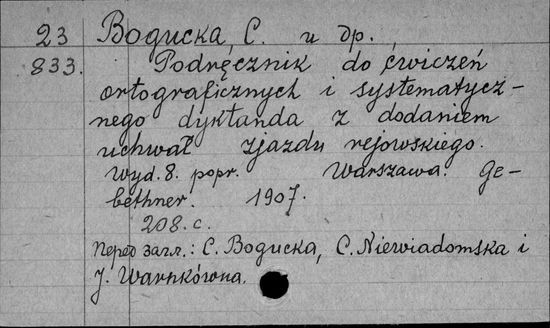 23 Bogucka, C. и др.
833. Podręcznik do ćwiczeń
ortograficznych i systematycz-
nego dyktanda z dodaniem
uchwał zjazdu rejowskiego.
Wyd. 8. popr. Warszawa. Ge-
bethner. 1907.
208. с.
Перед загл.: C. Bogucka, C. Niewiadomska i
J. Warnkówna.